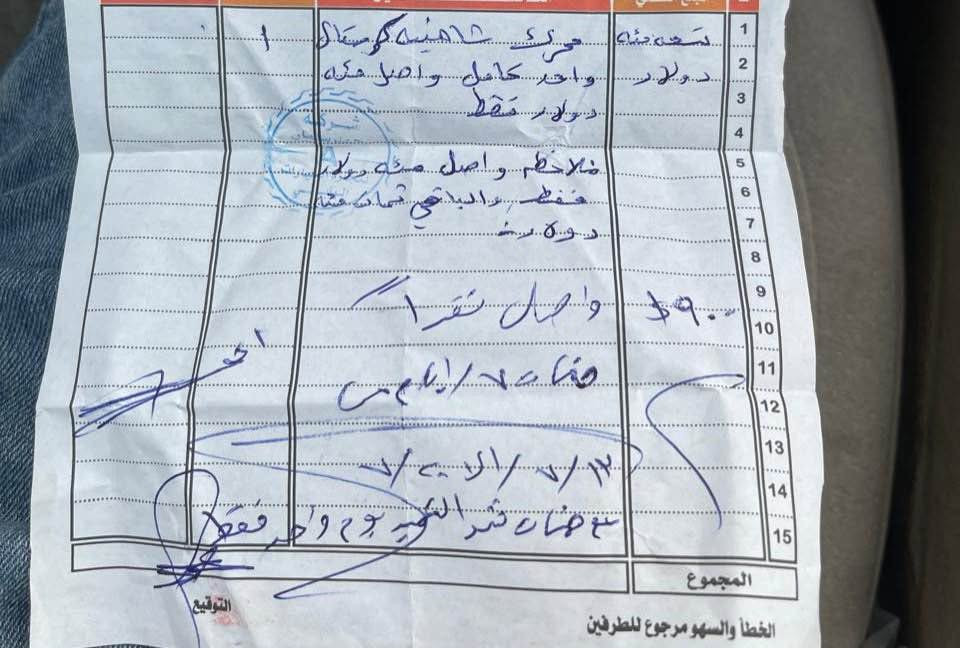 1 تسعه مئه محرك شاهنيه كرستال 1
2 دولار واحد كامل واصل مئه
3 دولار فقط
شركة
4
5 ملاحظه واصل مئه دولار
6 فقط والباقي ثمان مئه
7 دولار
8
9 $٩٠٠ واصل نقداً
10
11 ضمان ٧/ايام من
12
13 ٧/١٣ /الاحد ٧/
14
15 مع ضمان يوم واحد فقط
المجموع
التوقيع
الخطأ والسهو مرجوع للطرفين